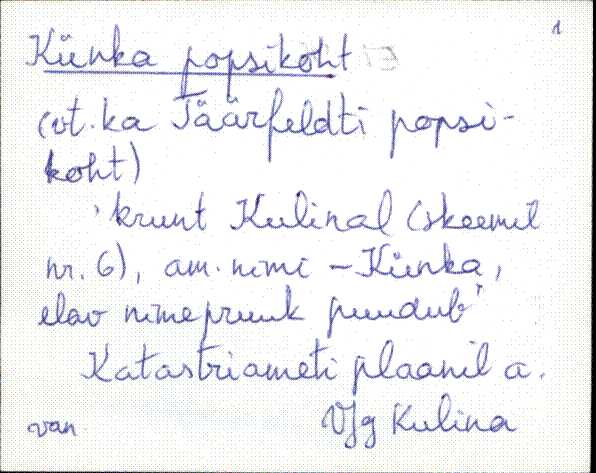 1
Künka popsikoht
(vt. ka Jäärfeldti popsi-
koht)
'krunt Kulinal (skeemil
nr. 6), am. nimi - Künka,
elav nimepruuk puudub'
Katastriameti plaanil a.
van. VJg Kulina